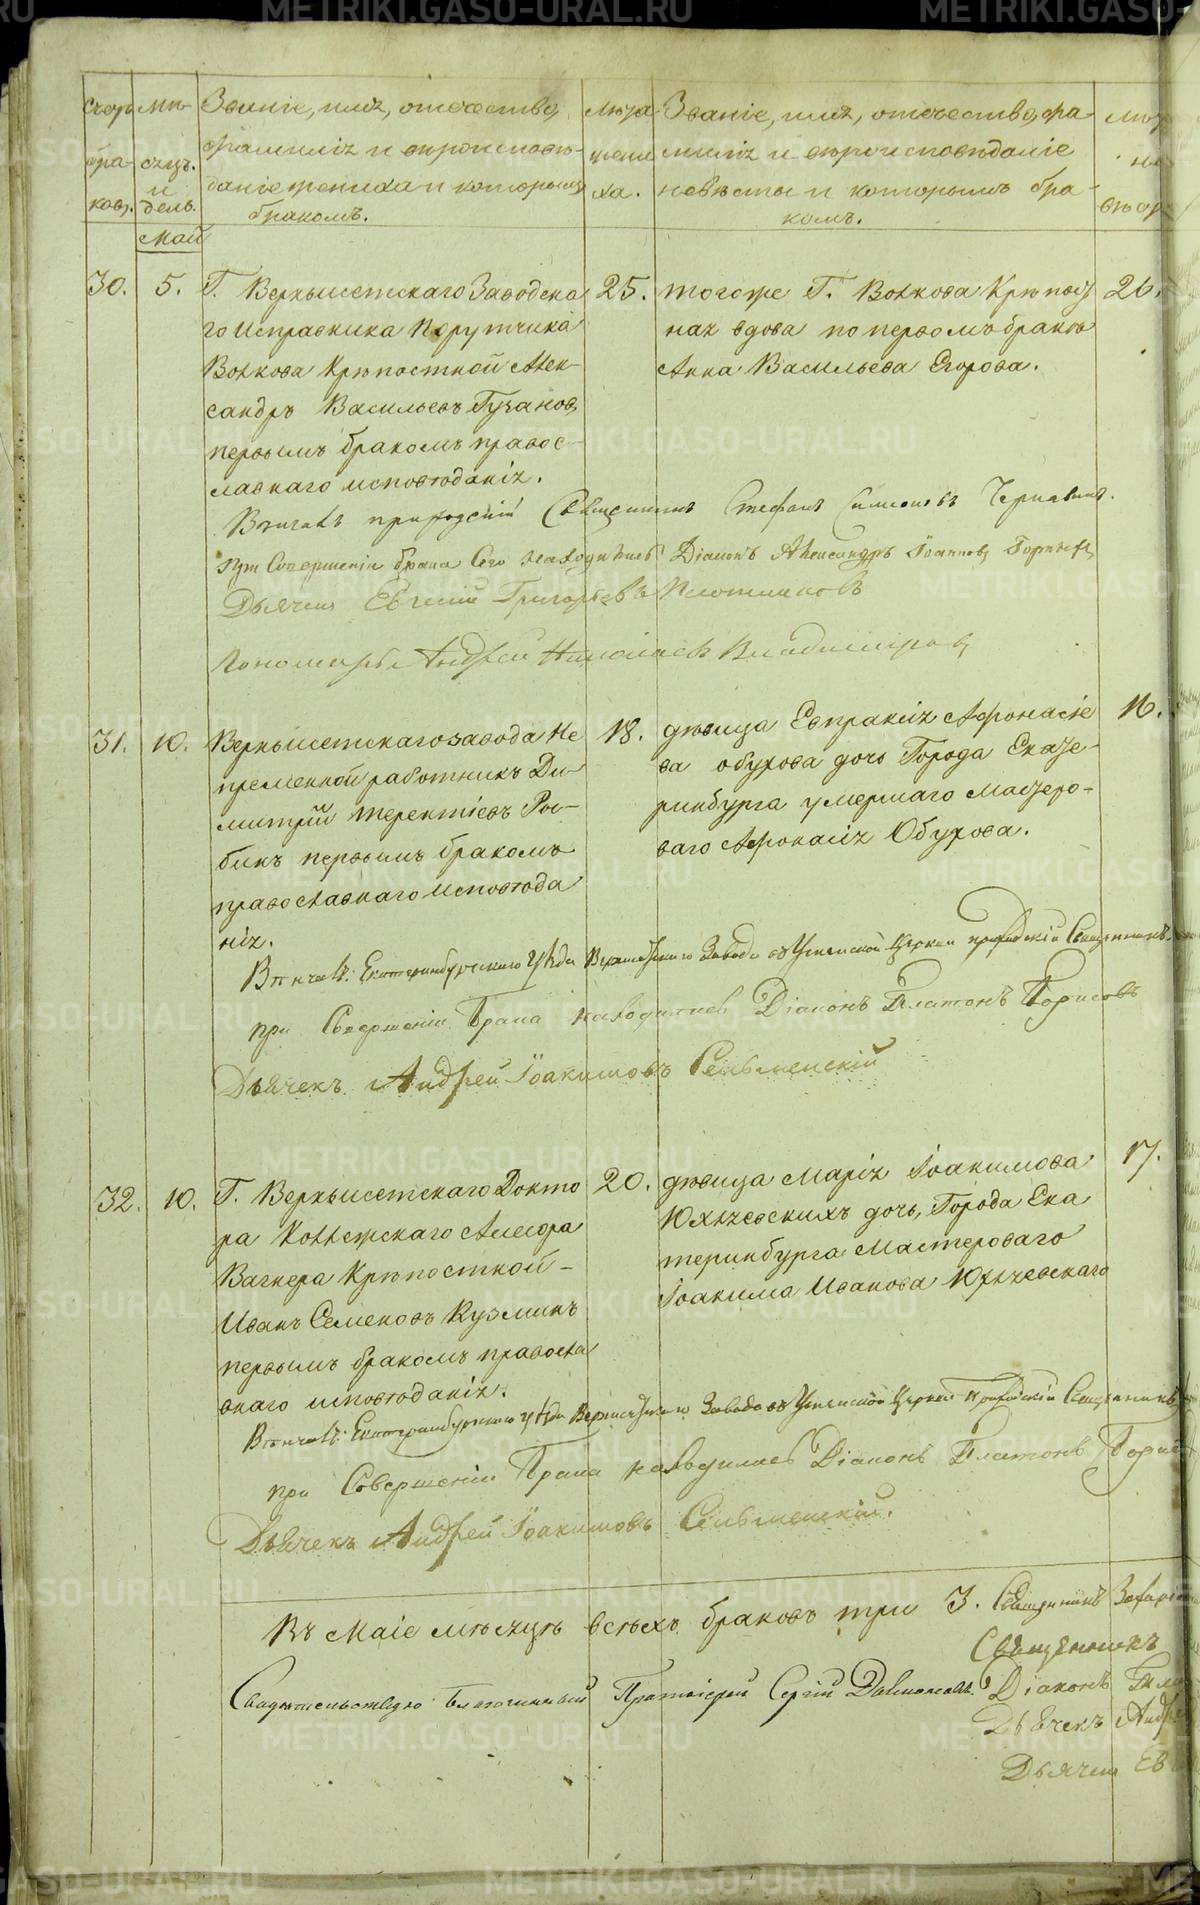 METRIKI.GASO-URAL.RU
Счетъ бра-ковъ.
мѣ-сяцъ. и день.
Званіе, имя, отечество,
фамилія и вѣроисповѣ-
даніе жениха и которымъ
бракомъ.
лѣта
жени
ха.
Званіе, имя, отечество, фа-
милія и вѣроисповѣданіе
невѣсты и которымъ бра-
комъ.
Май
30. 5.
Г. Верхъисетскаго Заводска
го Исправника Порутчика
Волкова Крѣпостной Алек-
сандръ Васильевъ Гузановъ
первымъ бракомъ правос-
лавнаго исповѣданія.
25.
тогоже Г. Волкова Крѣпост
ная вдова по первомъ бракѣ
Анна Васильева Егорова.
26.
Вѣнчалъ приходскій Священникъ Стефанъ Симеоновъ Чернавинъ.
при Совершеніи брака Сего находились Діаконъ Александръ Іоанновъ
Дьячекъ Евгеній Григорьевъ Плотниковъ
Пономарь Андрей Николаевъ Владимировъ
31. 10.
Верхъисетскаго завода Не
премѣнной работникъ Ди-
митрій Терентіевъ
первымъ бракомъ
православнаго исповѣда
нія.
18.
дѣвица Евпраксія Афонасіе
ва обухова дочь Города Екате-
ринбурга умершаго Мастеро-
ваго Афонасія Обухова.
16.
Вѣнчалъ: Екатеринбургскаго уѣзда Верхисетскаго Завода Успенской Церкви приходскій Священникъ
при Совершеніи Брака находились Діаконъ Платонъ Борисовъ
Дьячекъ Андрей Іоакимовъ Сельменскій
32. 10.
Г. Верхъисетскаго Докто
ра Коллежскаго Ассесора
Вагнера Крѣпостной
Иванъ Семеновъ Кузминъ
первымъ бракомъ правосла
внаго исповѣданія.
20.
дѣвица Марія Іоакимова
дочь, Города Ека
теринбурга Мастероваго
Іоакима Иванова
17.
Вѣнчалъ: Екатеринбургскаго уѣзда Верхисетскаго Завода Успенской Церкви Приходскій Священникъ
при Совершеніи Брака находились Діаконъ Платонъ
Дьячекъ Андрей Іоакимовъ Сельменскій.
Въ Маіе мѣсяцѣ всѣхъ браковъ три 3. Священникъ
Священникъ
Свидѣтельствую Благочинный Протоіерей Сергій Діаконъ
Дьячекъ
Дьячекъ